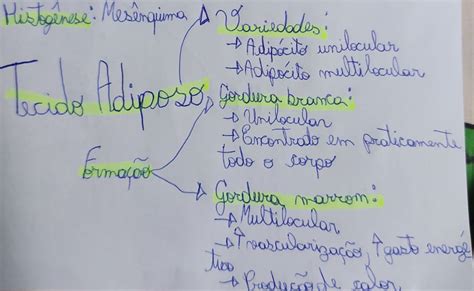 Histogênese: Mesênquima
Tecido Adiposo
Variedades:
→ Adipócito unilocular
→ Adipócito multilocular
Formação
Gordura branca:
→ Unilocular
→ Encontrato em praticamente
todo o corpo
Gordura marrom:
→ Multilocular
→ ↑ vascularização, ↑ gasto energé
tico
→ Produção de calor